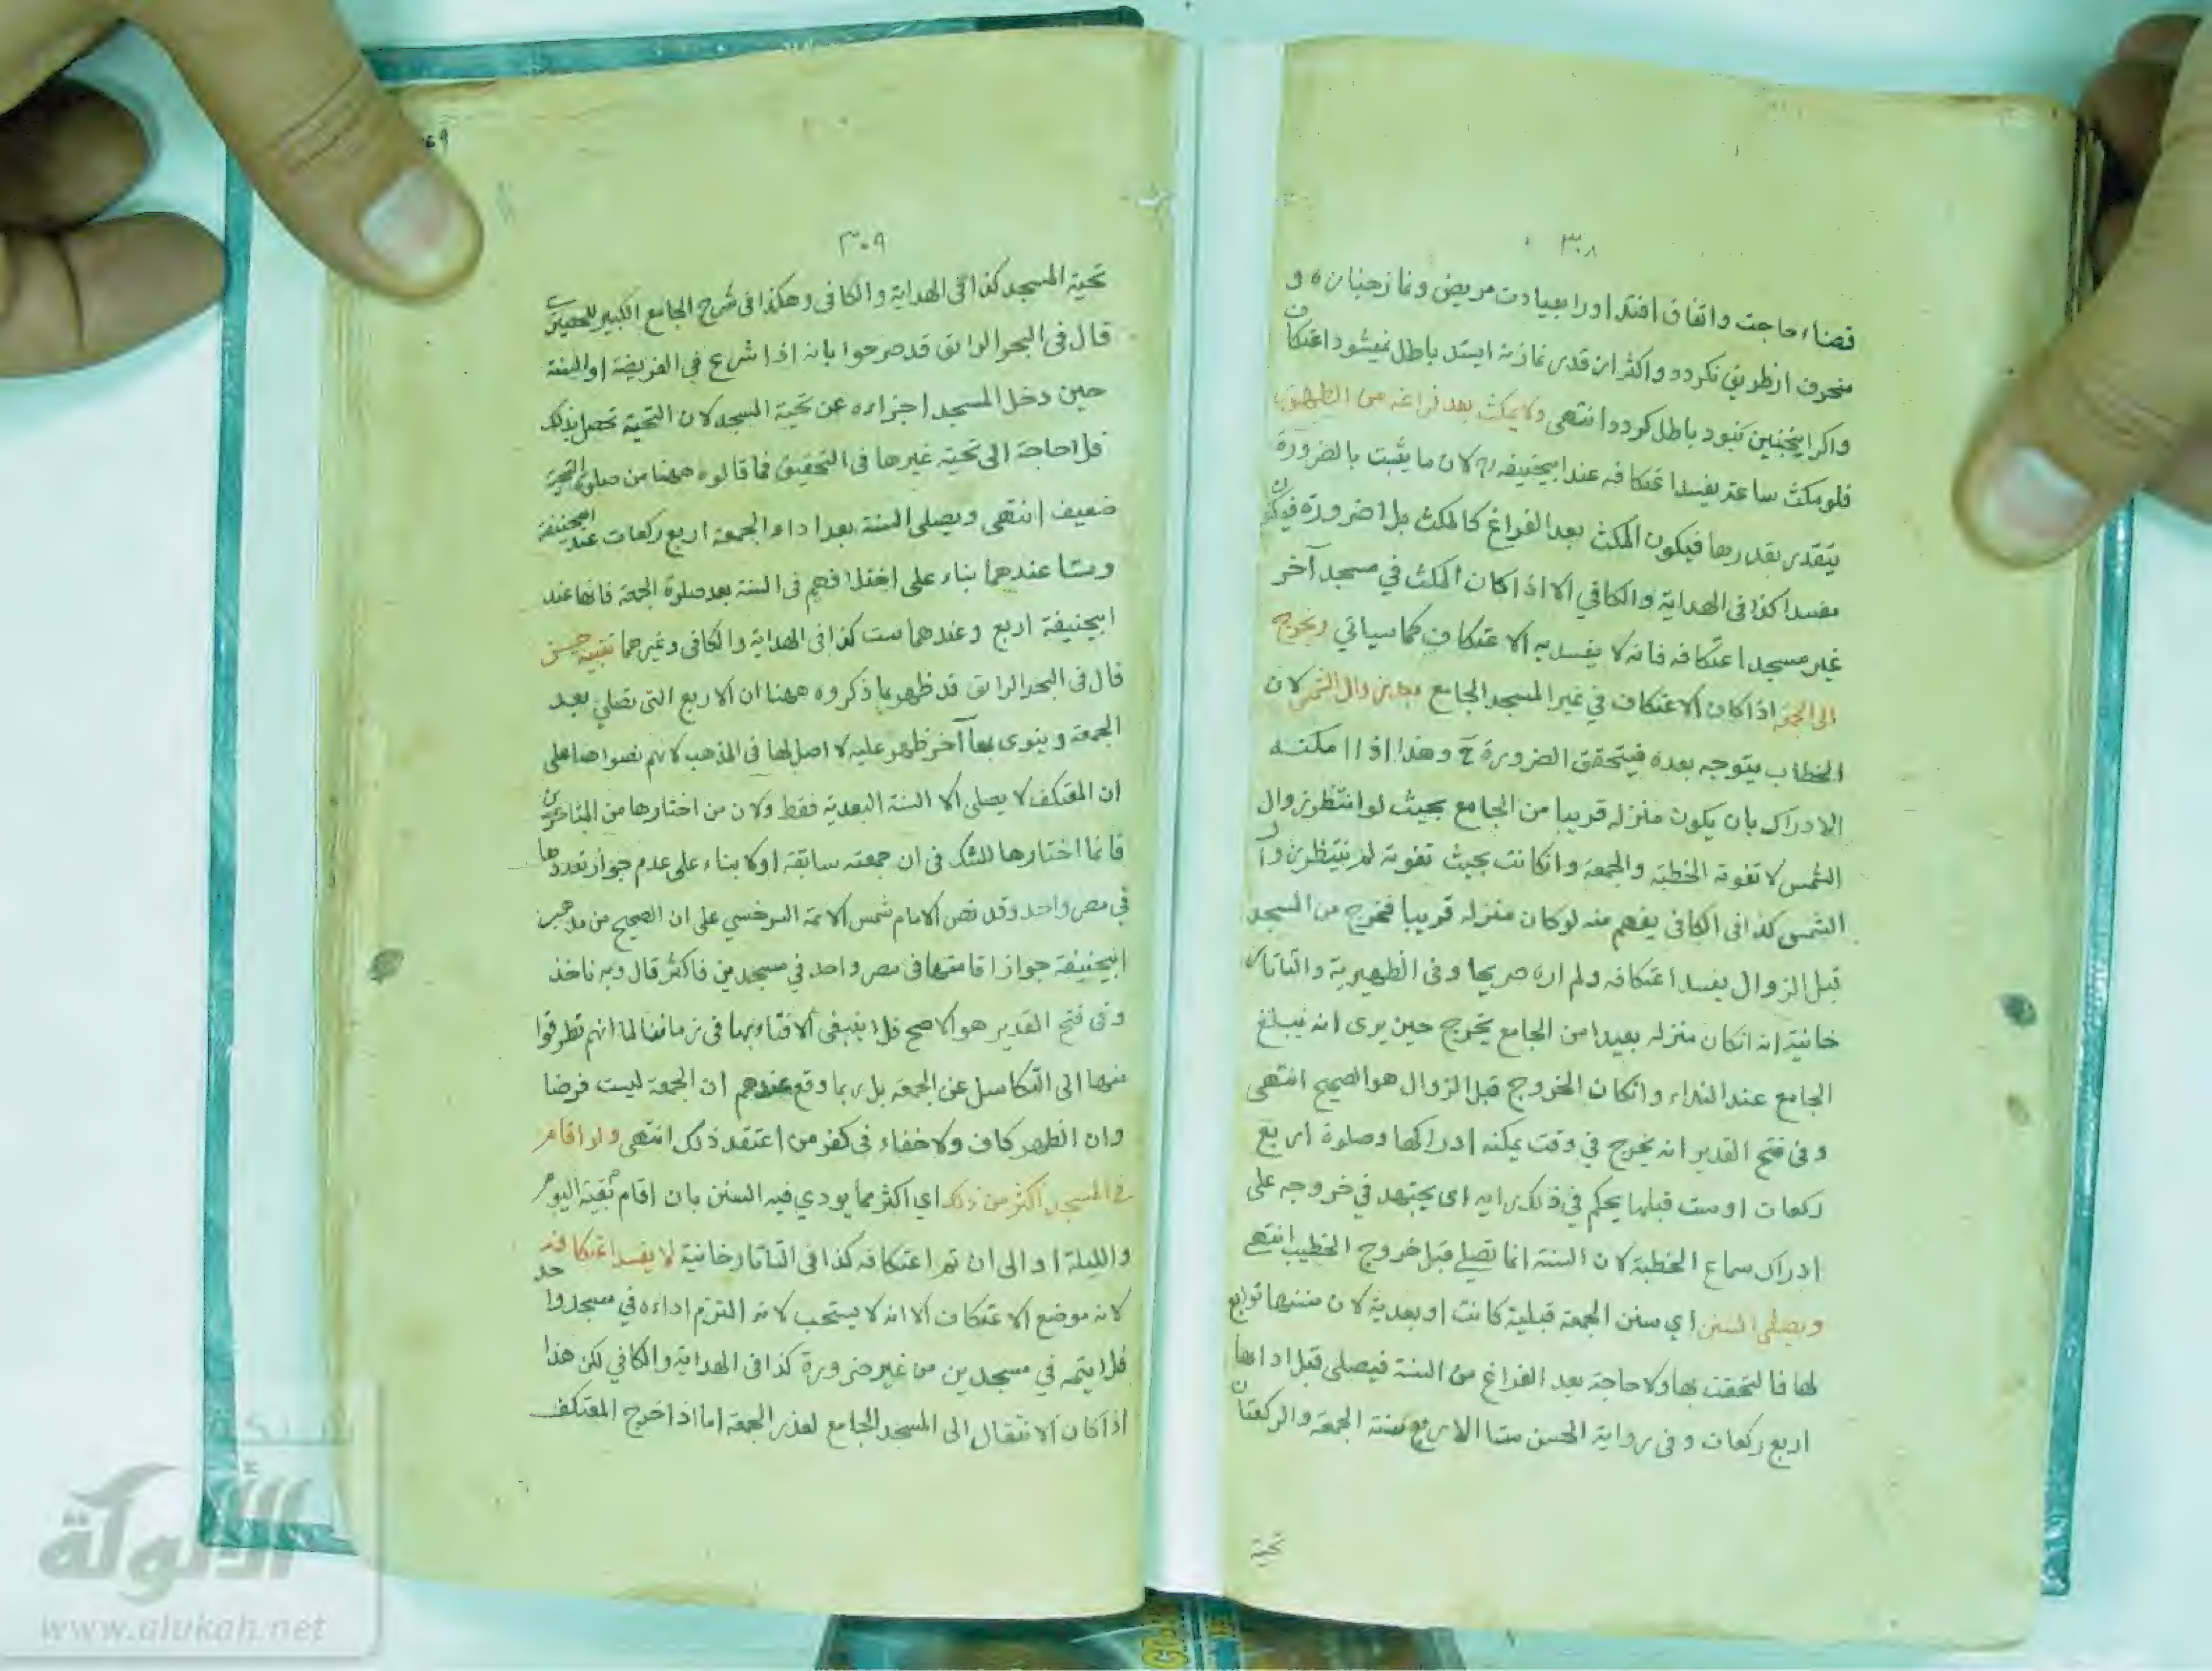 ٣٠٨
قضاء حاجت واتفاق افتد اورا بعيادت مريض ونماز جنازه و
منحرف ازطريق نكردد واكثر از قدر نماز نه ايستد باطل نميشود اعتكاف
واكر اينچنين نبود باطل كردد انتهى ولا يمكث بعد فراغه من الطهور
فلو مكث ساعة يفسد اعتكافه عند ابيحنيفه رح لان ما يثبت بالضرورة
يتقدر بقدرها فيكون المكث بعد الفراغ كالمكث بلا ضرورة فيكون
مفسدا كذا في الهداية والكافي الا اذا كان المكث في مسجد آخر
غير مسجد اعتكافه فانه لا يفسد به الاعتكاف كما سياتي ويخرج
الى الجمعة اذا كان الاعتكاف في غير المسجد الجامع بعد زوال الشمس لان
الخطاب يتوجه بعده فيتحقق الضرورة ح وهذا اذا امكنه
الادراك بان يكون منزله قريبا من الجامع بحيث لو انتظر زوال
الشمس لا تفوته الخطبة والجمعة وانكانت بحيث تفوته لم ينتظر زوال
الشمس كذا في الكافي يفهم منه لو كان منزله قريبا فخرج من المسجد
قبل الزوال يفسد اعتكافه ولم اره صريحا وفي الظهيرية والتاتار
خانية انه انكان منزله بعيدا من الجامع يخرج حين يرى انه يبلغ
الجامع عند النداء وانكان الخروج قبل الزوال هو الصحيح انتهى
وفي فتح القدير انه يخرج في وقت يمكنه ادراكها وصلوة اربع
ركعات او ست قبلها يحكم في ذلك رايه اى يجتهد في خروجه على
ادراك سماع الخطبة لان السنة انما تصلى قبل خروج الخطيب انتهى
ويصلي السنن اي سنن الجمعة قبلية كانت او بعدية لان سننها توابع
لها فالتحقت بها ولا حاجة بعد الفراغ من السنة فيصلى قبل ادائها
اربع ركعات وفي رواية الحسن ستا الاربع سنة الجمعة والركعتان
تحية
٣٠٩
تحية المسجد كذا في الهداية والكافي وهكذا في شرح الجامع الكبير للحصيري
قال في البحر الرائق قد صرحوا بانه اذا شرع في الفريضة او السنة
حين دخل المسجد اجزاءه عن تحية المسجد لان التحية تحصل بذلك
فلا حاجة الى تحية غيرها في التحقيق فما قالوه ههنا من صلوة التحية
ضعيف انتهى ويصلى السنة بعد اداء الجمعة اربع ركعات عند ابيحنيفة
وستا عندهما بناء على اختلافهم في السنة بعد صلوة الجمعة فانها عند
ابيحنيفة اربع وعندهما ست كذا في الهداية والكافي وغيرهما تنبيه حسن
قال في البحر الرائق قد ظهر بما ذكروه ههنا ان الاربع التى تصلي بعد
الجمعة وينوى بها آخر ظهر عليه لا اصل لها في المذهب لانهم نصوا هنا على
ان المعتكف لا يصلى الا السنة البعدية فقط ولان من اختارها من المتاخرين
فانما اختارها للشك في ان جمعته سابقة اولا بناء على عدم جواز تعددها
في مصر واحد وقد نص الامام شمس الائمة السرخسي على ان الصحيح من مذهب
ابيحنيفة جواز اقامتها في مصر واحد في مسجدين فاكثر قال وبه ناخذ
وفي فتح القدير هو الاصح فلا ينبغى الافتاء بها في زماننا لما انهم تطرقوا
منها الى التكاسل عن الجمعة بل ربما وقع عندهم ان الجمعة ليست فرضا
وان الظهر كاف ولا خفاء في كفر من اعتقد ذلك انتهى ولو اقام
في المسجد اكثر من ذلك اي اكثر مما يودي فيه السنن بان اقام بقية اليوم
والليلة او الى ان تم اعتكافه كذا في التاتارخانية لا يفسد اعتكافه
لانه موضع الاعتكاف الا انه لا يستحب لانه التزم اداءه في مسجد واحد
فلا يتمه في مسجدين من غير ضرورة كذا في الهداية والكافي لكن هذا
اذا كان الانتقال الى المسجد الجامع لعذر الجمعة اما اذا خرج المعتكف
شبكة
الألوكة
www.alukah.net